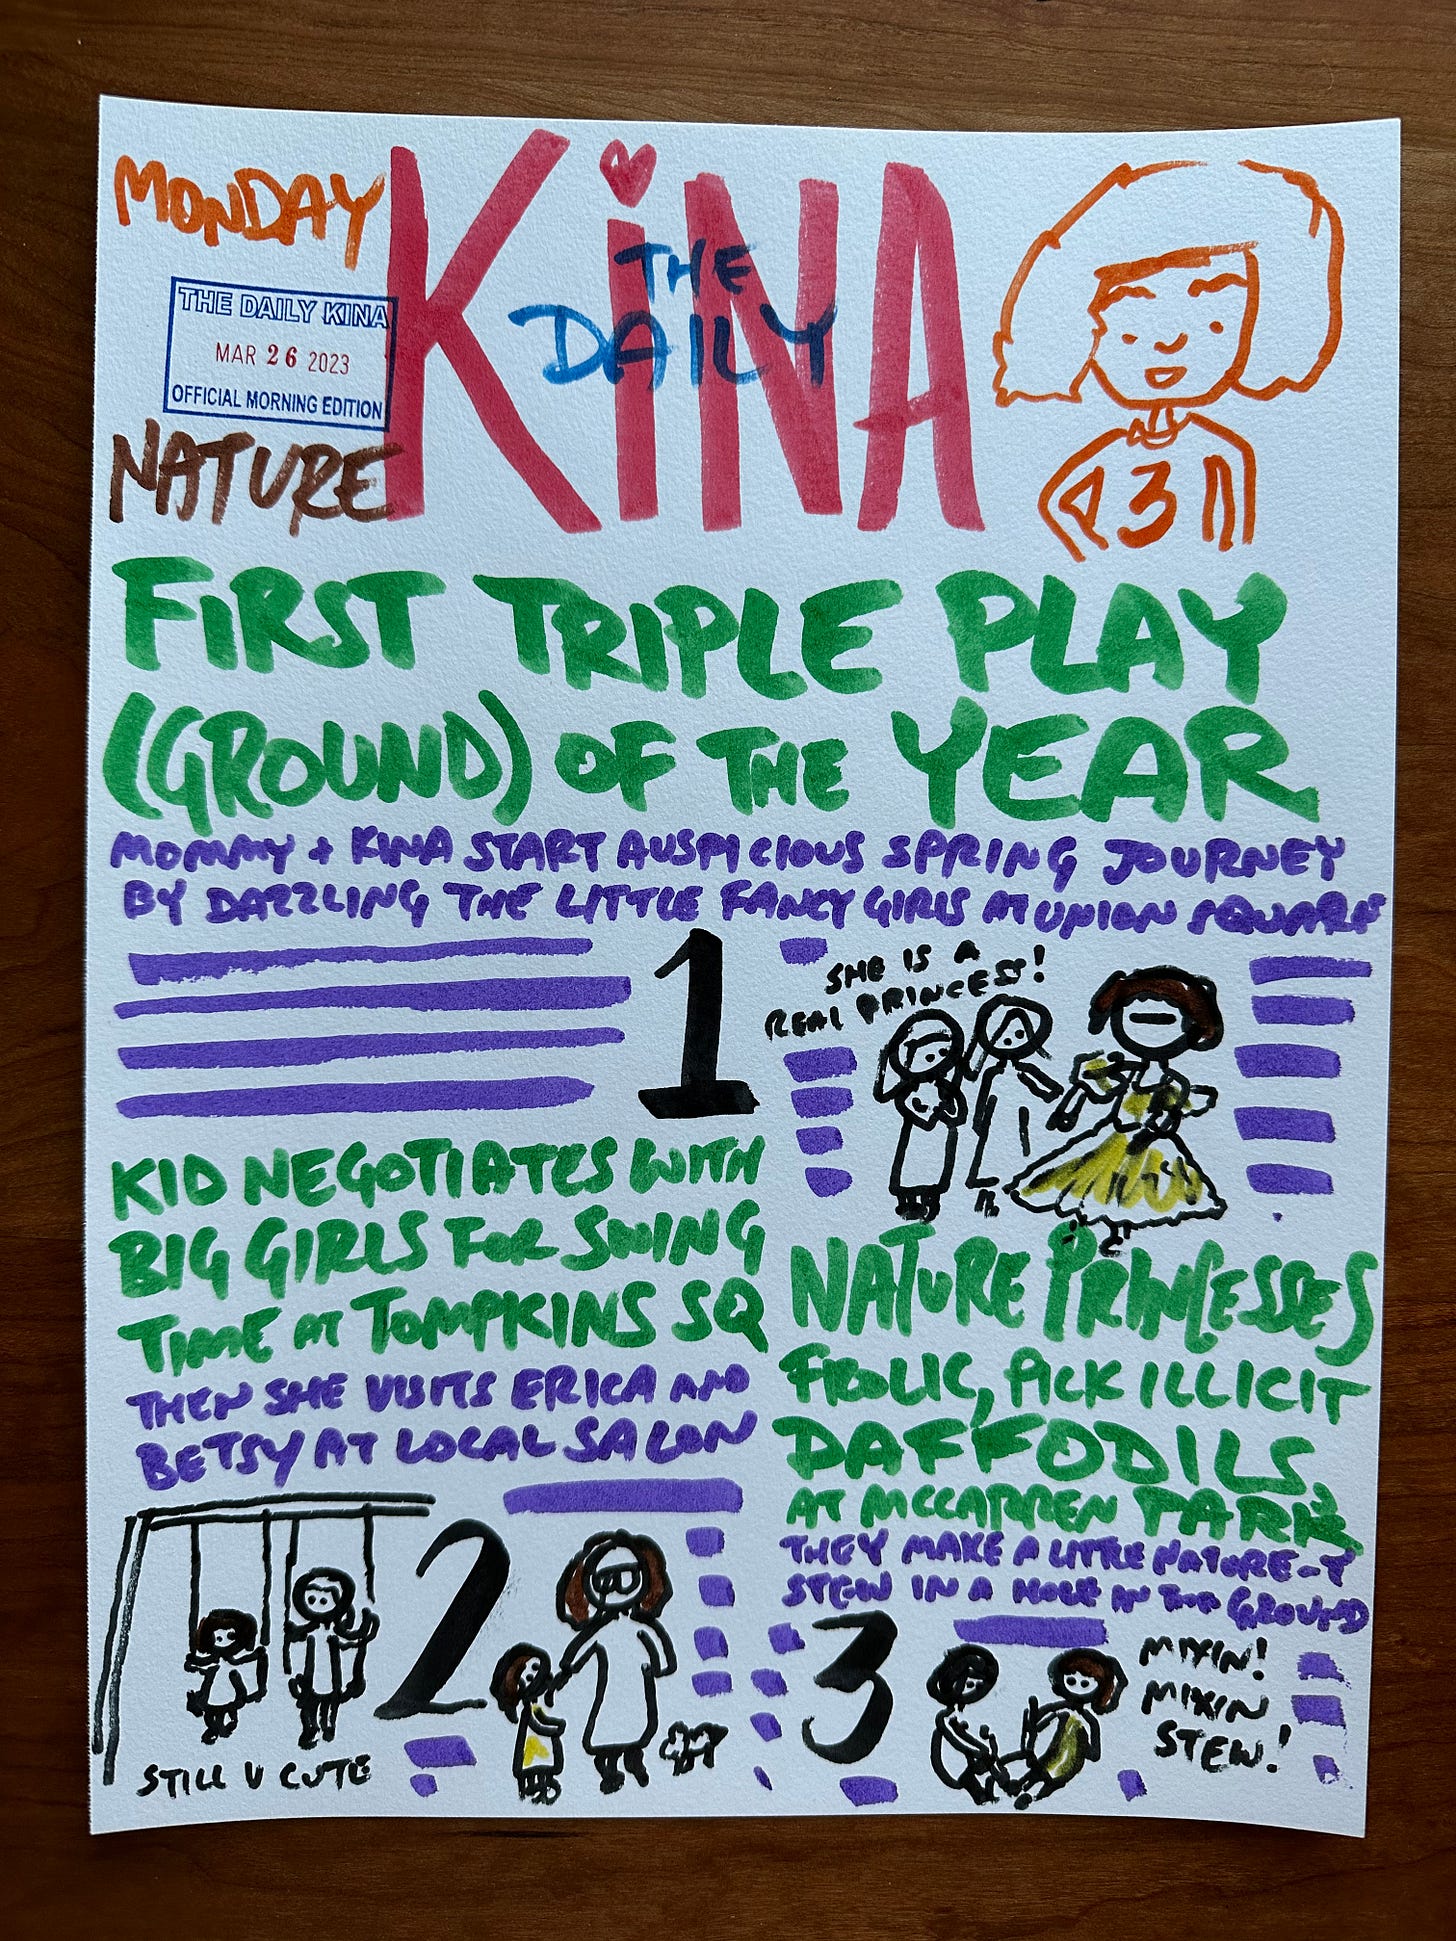 MONDAY
THE DAILY KINA
MAR 26 2023
OFFICIAL MORNING EDITION
NATURE
KiNA
THE
DAILY
3
FIRST TRIPLE PLAY
(GROUND) OF THE YEAR
MOMMY + KINA START AUSPICIOUS SPRING JOURNEY
BY DAZZLING THE LITTLE FANCY GIRLS AT UNION SQUARE
1
SHE IS A
REAL PRINCESS!
KID NEGOTIATES WITH
BIG GIRLS FOR SWING
TIME AT TOMPKINS SQ
THEN SHE VISITS ERICA AND
BETSY AT LOCAL SALON
2
STILL V CUTE
NATURE PRINCESSES
FROLIC, PICK ILLICIT
DAFFODILS,
AT MCCARREN PARK
THEY MAKE A LITTLE NATURE-Y
STEW IN A HOLE IN THE GROUND
3
MIXIN!
MIXIN
STEW!